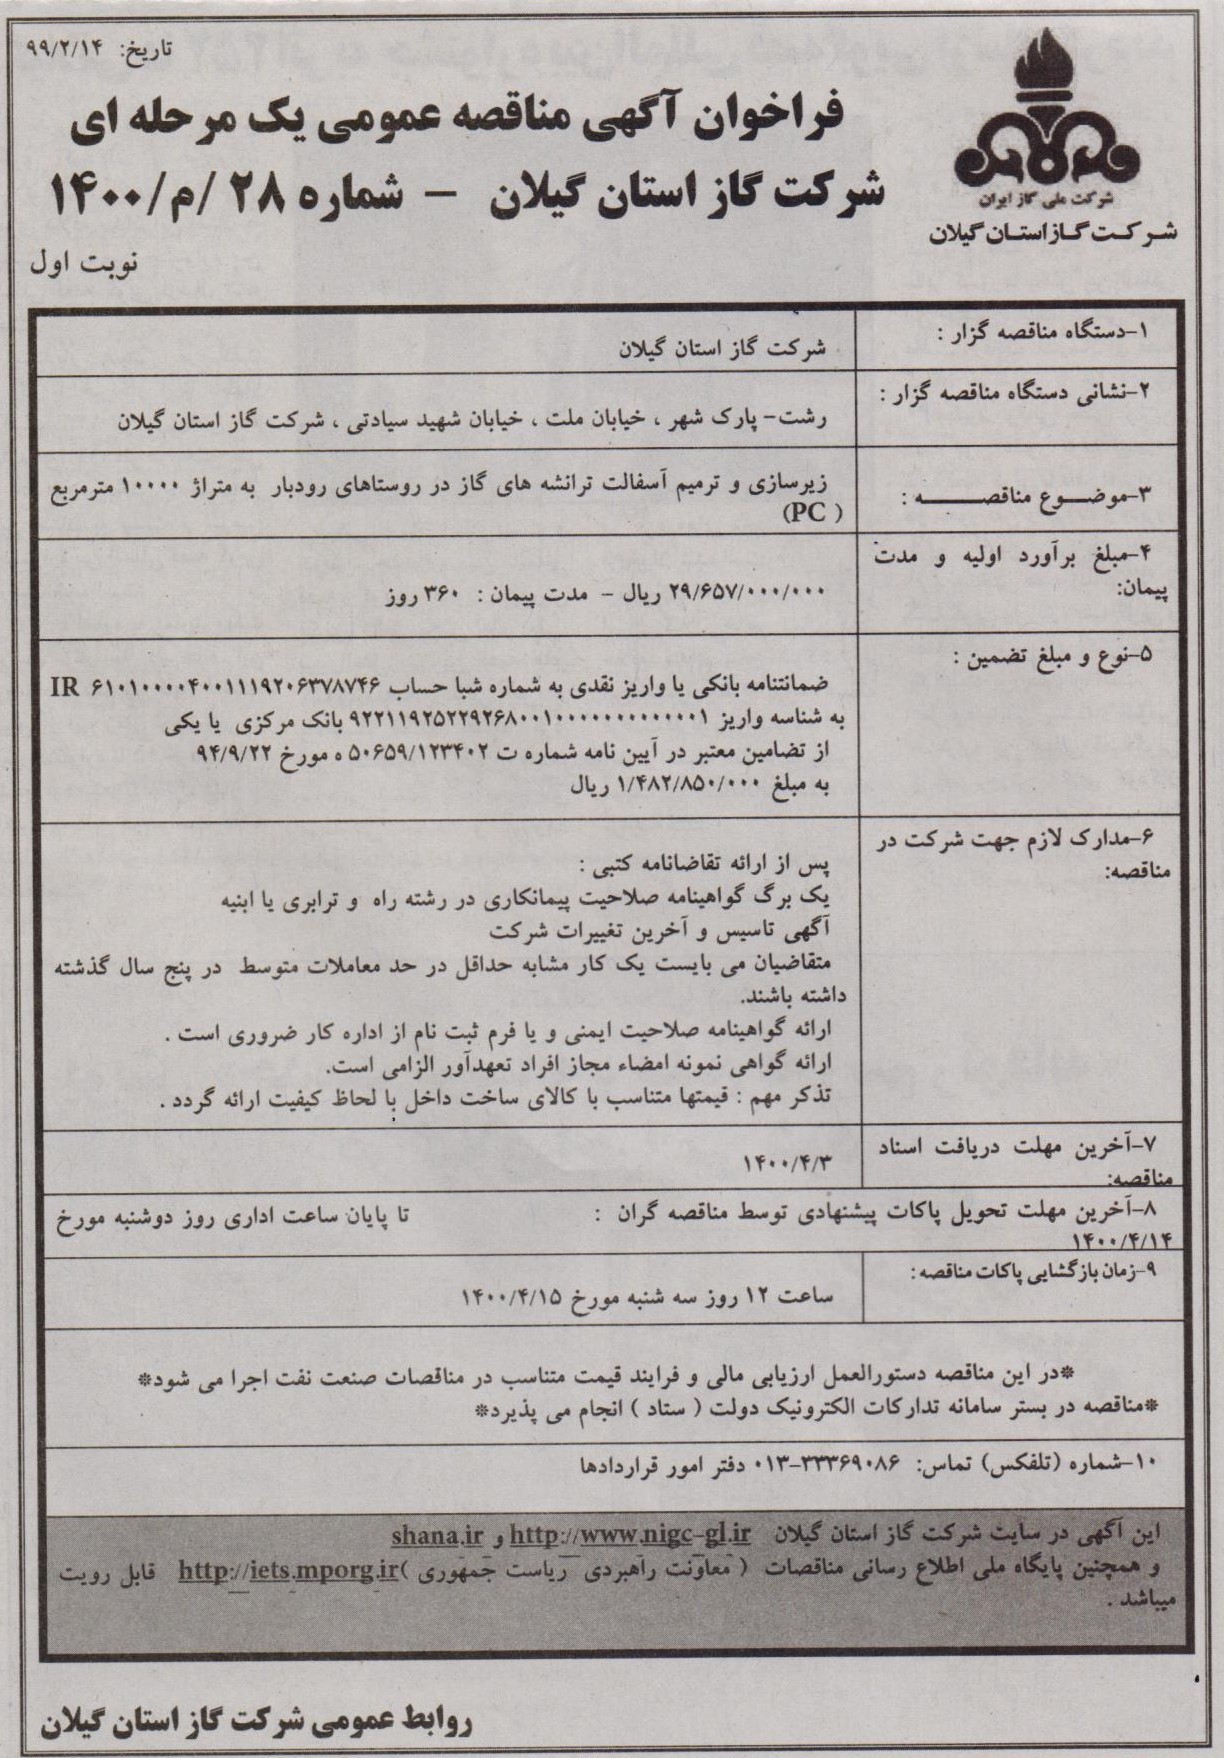 تاریخ: ۹۹/۲/۱۴
فراخوان آگهی مناقصه عمومی یک مرحله ای
شرکت گاز استان گیلان – شماره ۲۸ /م/۱۴۰۰
شرکت ملی گاز ایران
شرکت گاز استان گیلان
نوبت اول
۱-دستگاه مناقصه گزار :
شرکت گاز استان گیلان
۲-نشانی دستگاه مناقصه گزار :
رشت- پارک شهر ، خیابان ملت ، خیابان شهید سیادتی ، شرکت گاز استان گیلان
۳-موضوع مناقصه :
زیرسازی و ترمیم آسفالت ترانشه های گاز در روستاهای رودبار به متراژ ۱۰۰۰۰ مترمربع
( PC)
۴-مبلغ برآورد اولیه و مدت
پیمان:
۲۹/۶۵۷/۰۰۰/۰۰۰ ریال - مدت پیمان : ۳۶۰ روز
۵-نوع و مبلغ تضمین :
ضمانتنامه بانکی یا واریز نقدی به شماره شبا حساب IR ۶۱۰۱۰۰۰۰۴۰۰۱۱۱۹۲۰۶۳۷۸۷۴۶
به شناسه واریز ۹۲۲۱۱۹۲۵۲۲۹۲۶۸۰۰۱۰۰۰۰۰۰۰۰۰۰۰۰۰۱ بانک مرکزی یا یکی
از تضامین معتبر در آیین نامه شماره ت ۵۰۶۵۹/۱۲۳۴۰۲ ه مورخ ۹۴/۹/۲۲
به مبلغ ۱/۴۸۲/۸۵۰/۰۰۰ ریال
۶-مدارک لازم جهت شرکت در
مناقصه:
پس از ارائه تقاضانامه کتبی :
یک برگ گواهینامه صلاحیت پیمانکاری در رشته راه و ترابری یا ابنیه
آگهی تاسیس و آخرین تغییرات شرکت
متقاضیان می بایست یک کار مشابه حداقل در حد معاملات متوسط در پنج سال گذشته
داشته باشند.
ارائه گواهینامه صلاحیت ایمنی و یا فرم ثبت نام از اداره کار ضروری است .
ارائه گواهی نمونه امضاء مجاز افراد تعهدآور الزامی است.
تذکر مهم : قیمتها متناسب با کالای ساخت داخل با لحاظ کیفیت ارائه گردد .
۷-آخرین مهلت دریافت اسناد
مناقصه:
۱۴۰۰/۴/۳
۸-آخرین مهلت تحویل پاکات پیشنهادی توسط مناقصه گران : تا پایان ساعت اداری روز دوشنبه مورخ
۱۴۰۰/۴/۱۴
۹-زمان بازگشایی پاکات مناقصه:
ساعت ۱۲ روز سه شنبه مورخ ۱۴۰۰/۴/۱۵
*در این مناقصه دستورالعمل ارزیابی مالی و فرایند قیمت متناسب در مناقصات صنعت نفت اجرا می شود*
*مناقصه در بستر سامانه تدارکات الکترونیک دولت ( ستاد ) انجام می پذیرد*
۱۰-شماره (تلفکس) تماس: ۳۳۳۶۹۰۸۶-۰۱۳ دفتر امور قراردادها
این آگهی در سایت شرکت گاز استان گیلان http://www.nigc-gl.ir و shana.ir
و همچنین پایگاه ملی اطلاع رسانی مناقصات ( معاونت راهبردی ریاست جمهوری )http://iets.mporg.ir قابل رویت
میباشد .
روابط عمومی شرکت گاز استان گیلان